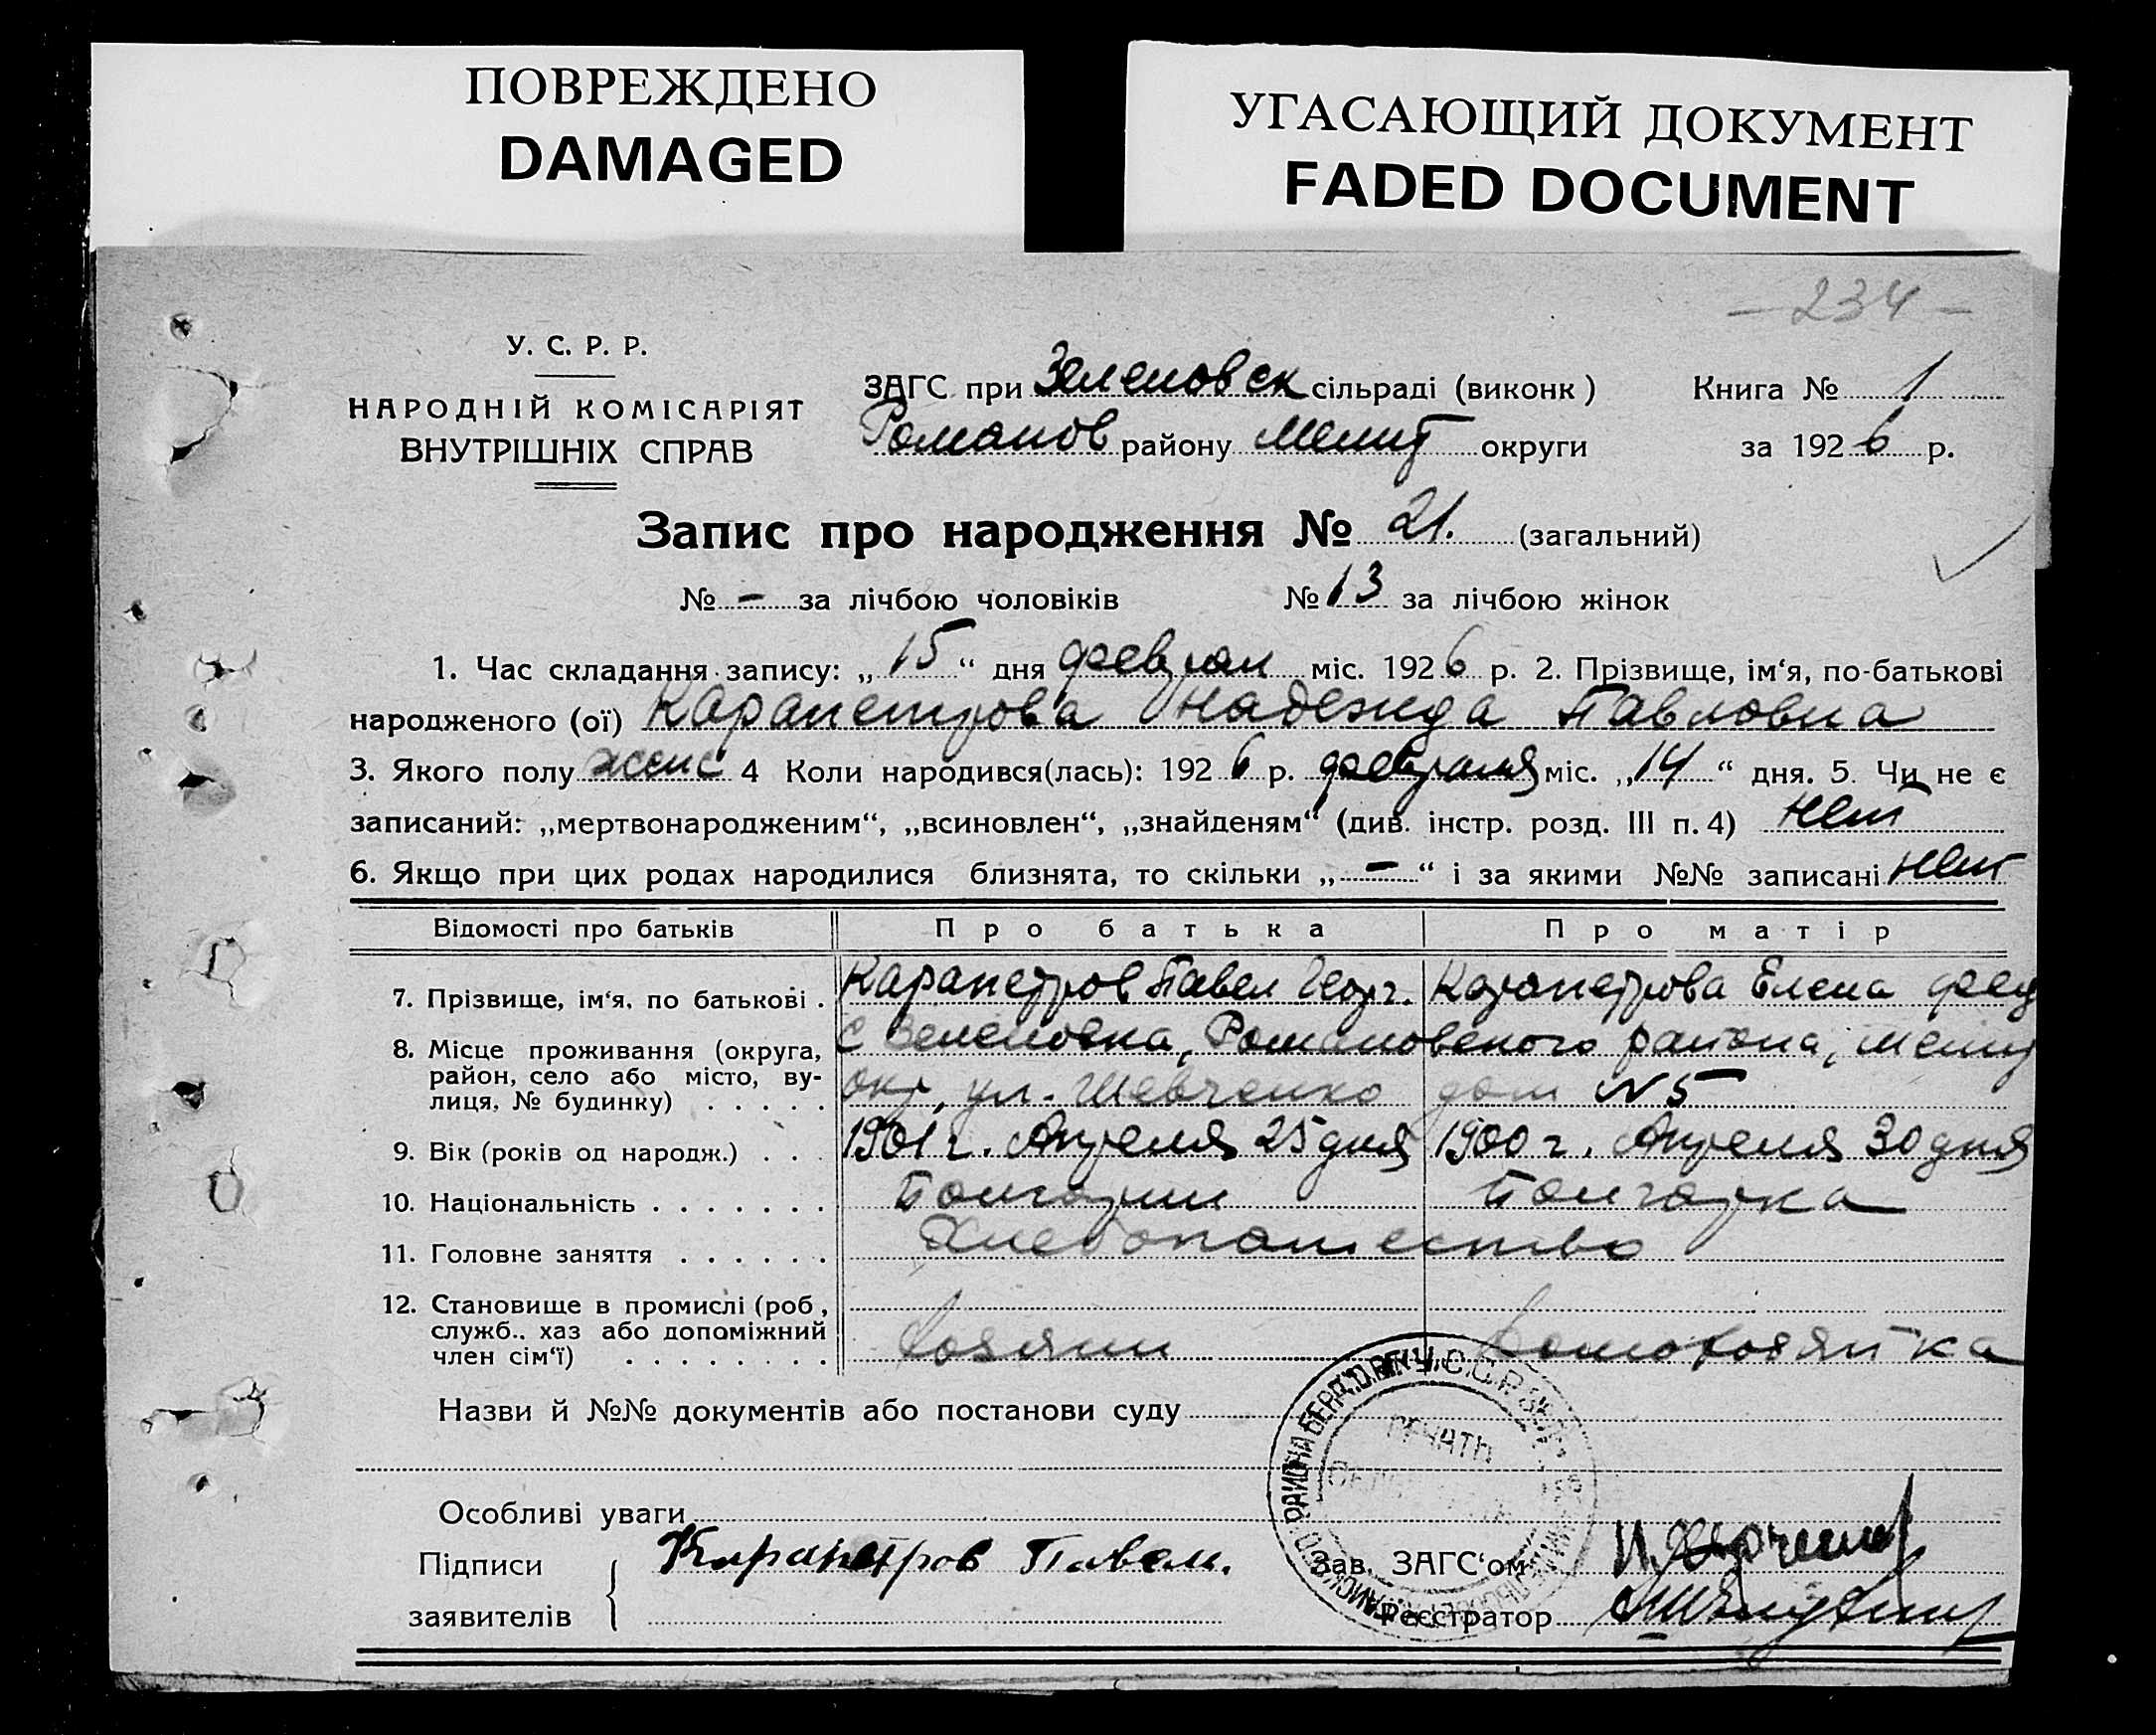 ПОВРЕЖДЕНО
DAMAGED
УГАСАЮЩИЙ ДОКУМЕНТ
FADED DOCUMENT
— 234 —
У. С. Р. Р.
НАРОДНІЙ КОМІСАРІЯТ
ВНУТРІШНІХ СПРАВ
ЗАГС при Зеленовск сільраді (виконк ) Книга № 1
Романов району Мелит округи за 1926 р.
Запис про народження № 21. (загальний)
№ - за лічбою чоловіків № 13 за лічбою жінок
1. Час складання запису: „ 15 “ дня феврал міс. 1926 р. 2. Прізвище, ім‘я, по-батькові
народженого (ої) Карапетрова Надежда Павловна
3. Якого полу женс 4 Коли народився(лась): 1926 р. февраля міс. „14“ дня. 5. Чи не є
записаний: „мертвонародженим“, „всиновлен“, „знайденям“ (див. інстр. розд. III п. 4) нет
6. Якщо при цих родах народилися близнята, то скільки „ - “ і за якими №№ записані нет
Відомості про батьків Про батька Про матір
7. Прізвище, ім‘я, по батькові . Карапетров Павел Георг. Карапетрова Елена Фед
8. Місце проживання (округа, С Зеленовка, Романовского района, Мелит
район, село або місто, ву-
лиця, № будинку) . . . . . окр, ул. Шевченко дом N 5
9. Вік (років од народж.) . . . 1901 г. Апреля 25 дня 1900 г. Апреля 30 дня
10. Національність . . . . . . . Болгарин Болгарка
11. Головне заняття . . . . . . Хлебопашество
12. Становище в промислі (роб ,
служб.. хаз або допоміжний
член сім‘ї) . . . . . . . . Хозяин Домохозяйка
Назви й №№ документів або постанови суду
Особливі уваги
Підписи Карапетров Павел. Зав. ЗАГС‘ом
заявителів Реєстратор
У.С.С.Р.
РАЙОНА БЕРД.
ПЕЧАТЬ